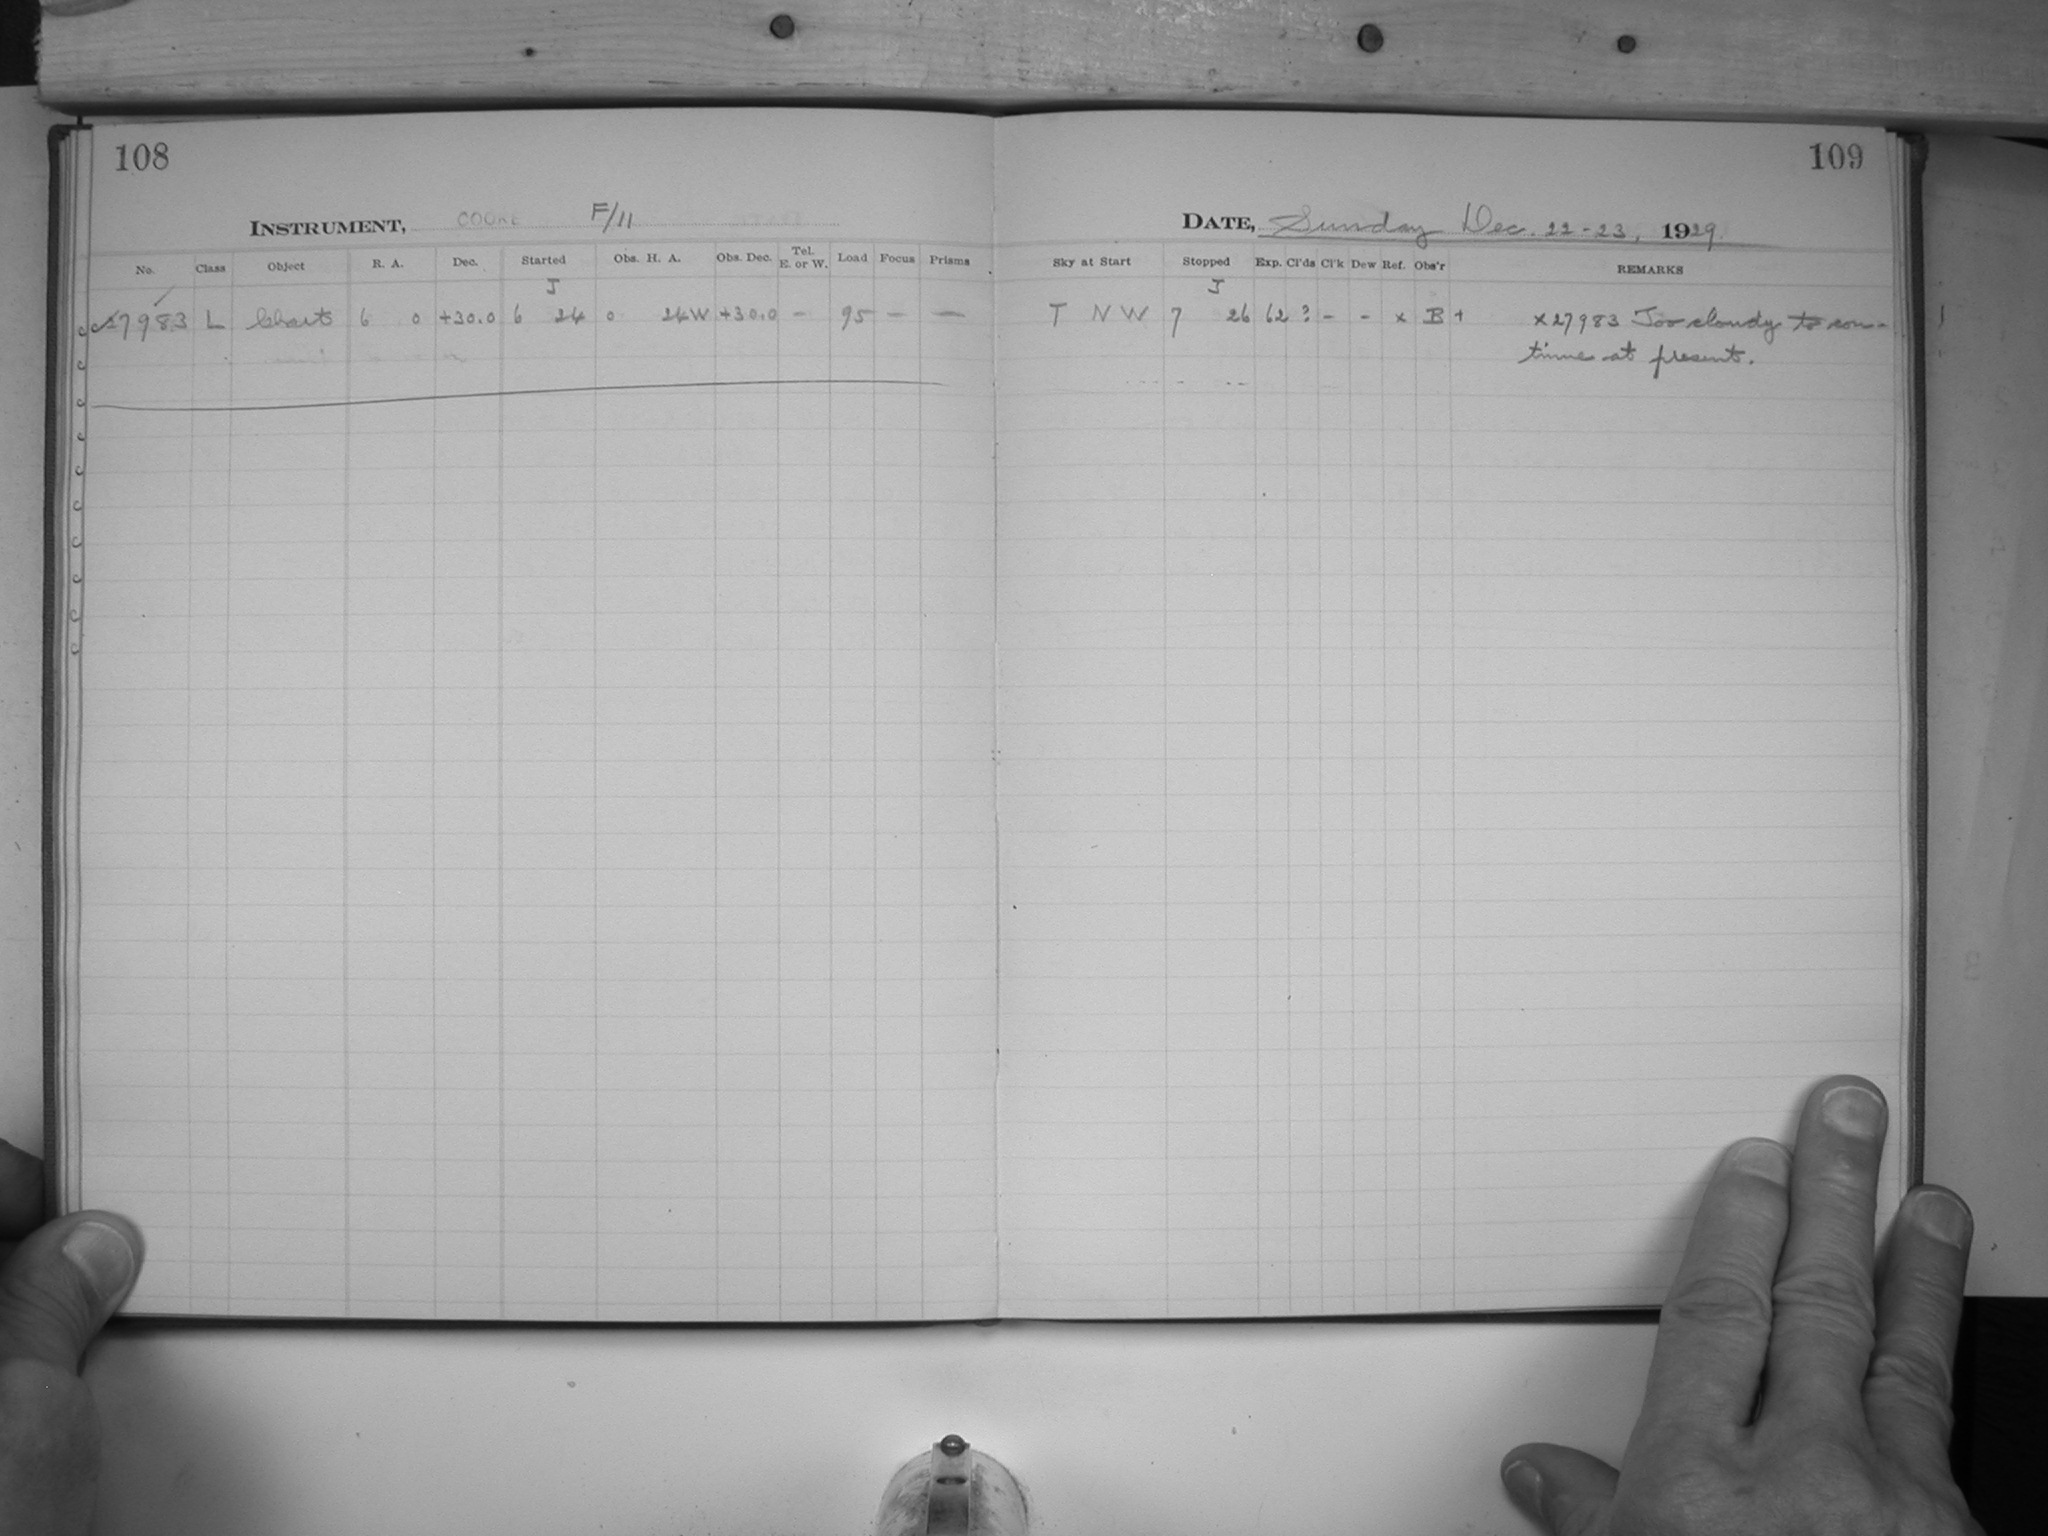 108
109
INSTRUMENT, COOKE F/11
DATE, Sunday Dec. 22-23, 1929
No. Class Object R. A. Dec. Started Obs. H. A. Obs. Dec. Tel. E. or W. Load Focus Prisms
Sky at Start Stopped Exp. Cl'ds Cl'k Dew Ref. Obs'r REMARKS
J
J
27983 L Chart 6 0 +30.0 6 24 0 24W +30.0 - 95 - -
T N W 7 26 62 ? - - x B + x27983 Too cloudy to con-
tinue at present.